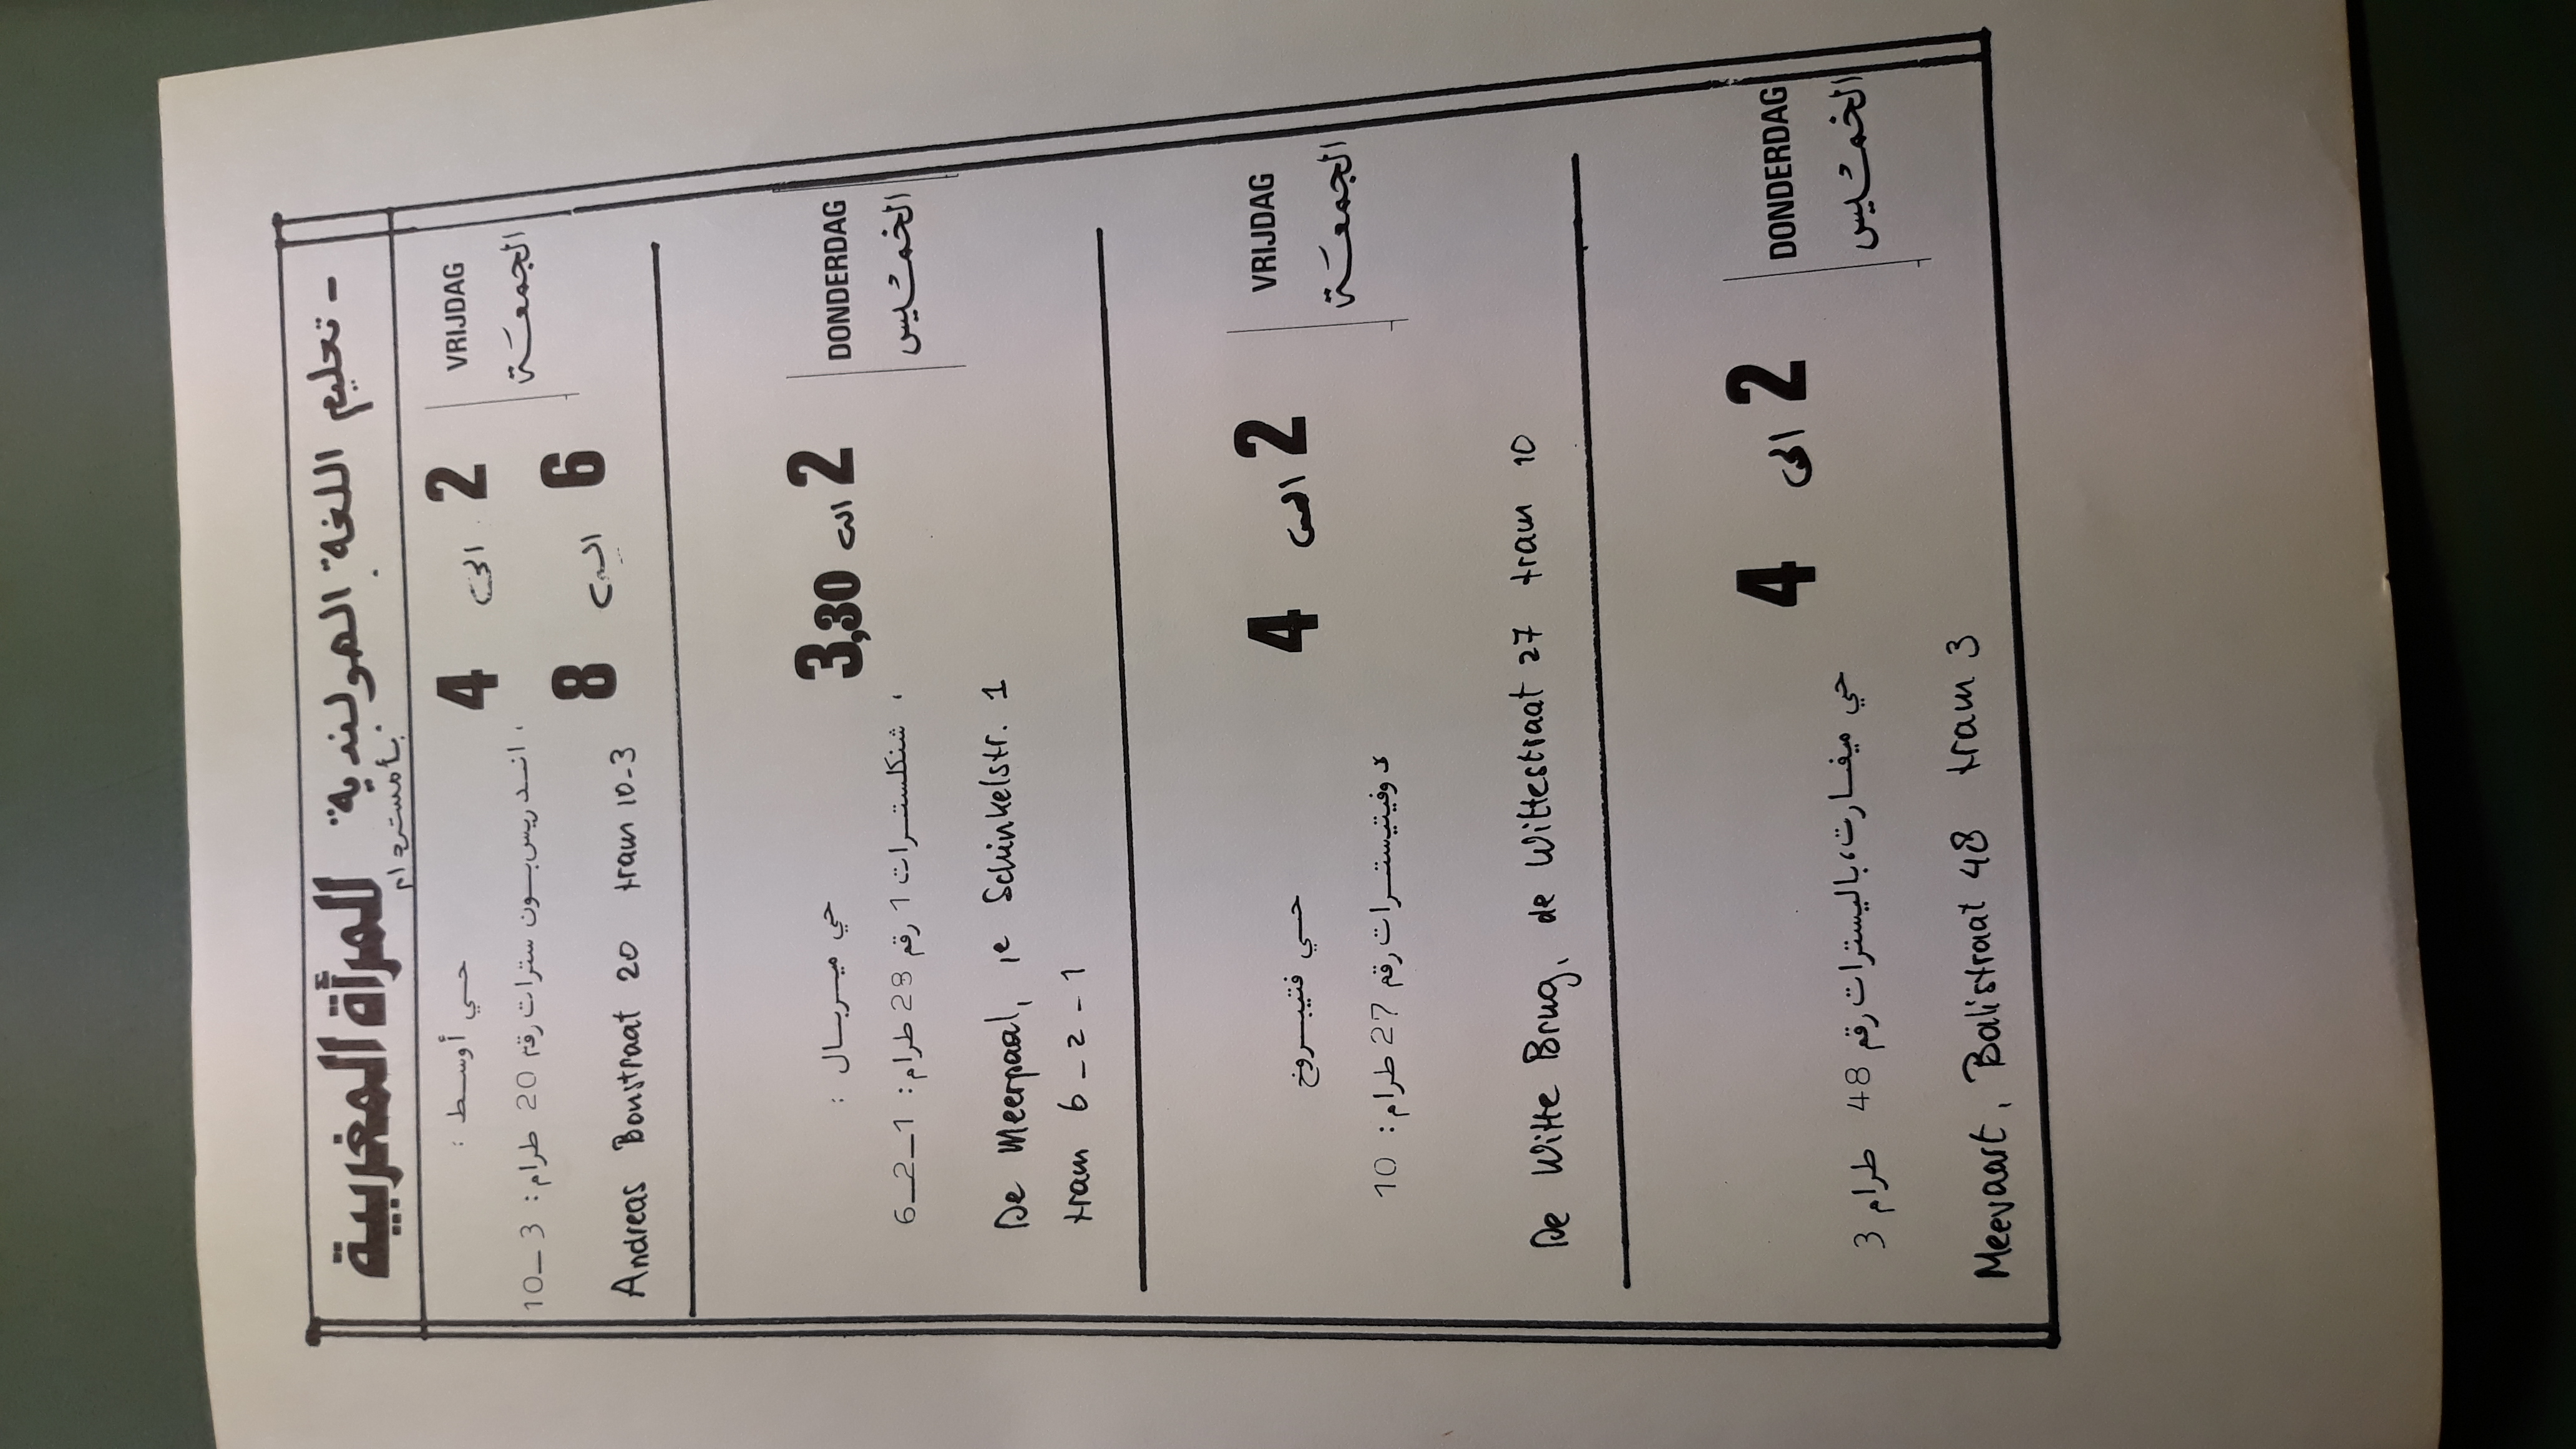 - تعليم اللغة الهولندية للمرأة المغربية
بأمستردام
VRIJDAG
الجمعة
2 الى 4
6 الى 8
حي أوسط :
، اندريس بون سترات رقم 20 طرام : 3-10
Andreas Bonstraat 20 tram 10-3
DONDERDAG
الخميس
2 الى 3,30
حي ميربال :
، شنكلسترات 1 رقم 28 طرام : 1-2-6
De Meerpaal, 1e Schinkelstr. 1
tram 6-2-1
VRIJDAG
الجمعة
2 الى 4
حي فتيبروخ
د وفيتيسترات رقم 27 طرام : 10
De Witte Brug, de Wittestraat 27 tram 10
DONDERDAG
الخميس
2 الى 4
حي ميفارت، باليسترات رقم 48 طرام 3
Meevaart, Balistraat 48 tram 3